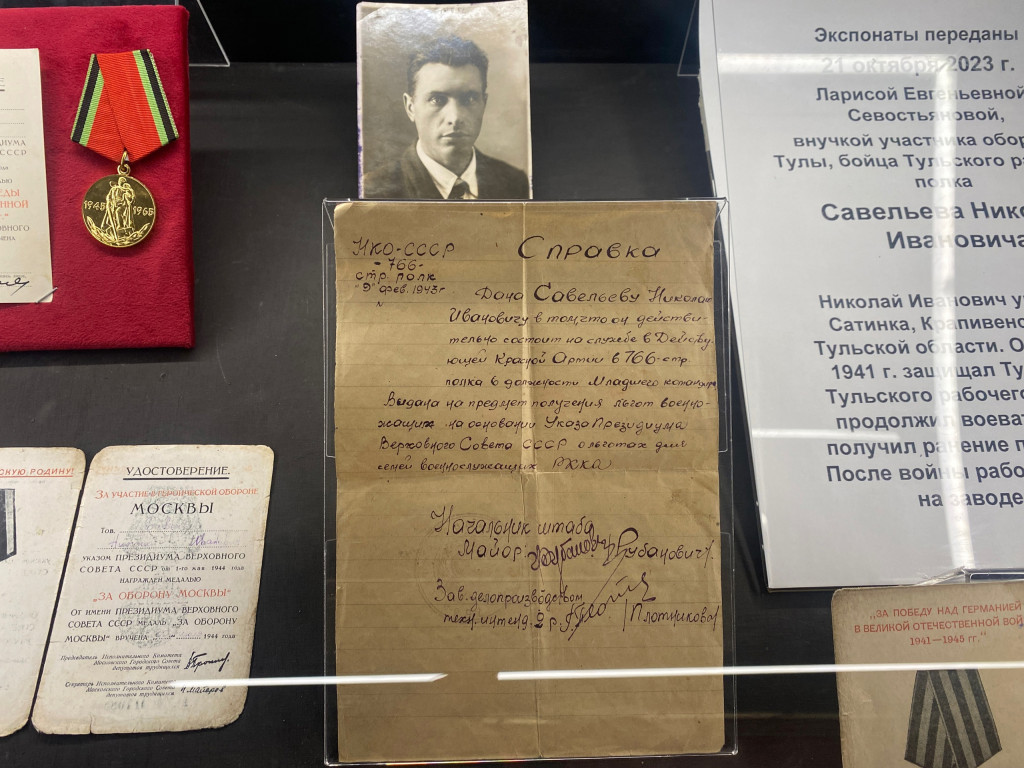 ДИУМА
СССР
ЕДЫ
ЕННОЙ
."
ВНОГО
МЕНА
1945 1965
НКО-СССР
-766-
стр. полк
"9" фев. 1943 г
Справка
Дана Савельеву Николаю
Ивановичу в том, что он действи-
тельно состоит на службе в Действу-
ющей Красной Армии в 766-стр.
полка в должности Младшего командира
Выдана на предмет получения льгот военно-
жащих на основании Указа Президиума
Верховного Совета СССР о льготах для
семей военнослужащих РККА
Начальник штаба
Майор /Рубанович/
Зав. делопроизводством
техн. интенд. 2 р. /Плотникова/
Экспонаты переданы
21 октября 2023 г.
Ларисой Евгеньевной
Севостьяновой,
внучкой участника обор
Тулы, бойца Тульского ра
полка
Савельева Нико
Ивановича
Николай Иванович у
Сатинка, Крапивенс
Тульской области. О
1941 г. защищал Ту
Тульского рабочег
продолжил воеват
получил ранение п
После войны рабо
на заводе
СКУЮ РОДИНУ!
УДОСТОВЕРЕНИЕ.
ЗА УЧАСТИЕ В ГЕРОИЧЕСКОЙ ОБОРОНЕ
МОСКВЫ
Тов.
УКАЗОМ ПРЕЗИДИУМА ВЕРХОВНОГО
СОВЕТА СССР от 1-го мая 1944 года
НАГРАЖДЕН МЕДАЛЬЮ
"ЗА ОБОРОНУ МОСКВЫ"
ОТ ИМЕНИ ПРЕЗИДИУМА ВЕРХОВНОГО
СОВЕТА СССР МЕДАЛЬ „ЗА ОБОРОНУ
МОСКВЫ" ВРУЧЕНА 1944 года
Председатель Исполнительного Комитета
Московского Городского Совета
депутатов трудящихся
Секретарь Исполнительного Комитета
Московского Городского Совета
депутатов трудящихся
„ЗА ПОБЕДУ НАД ГЕРМАНИЕЙ
В ВЕЛИКОЙ ОТЕЧЕСТВЕННОЙ ВОЙ
1941—1945 гг."